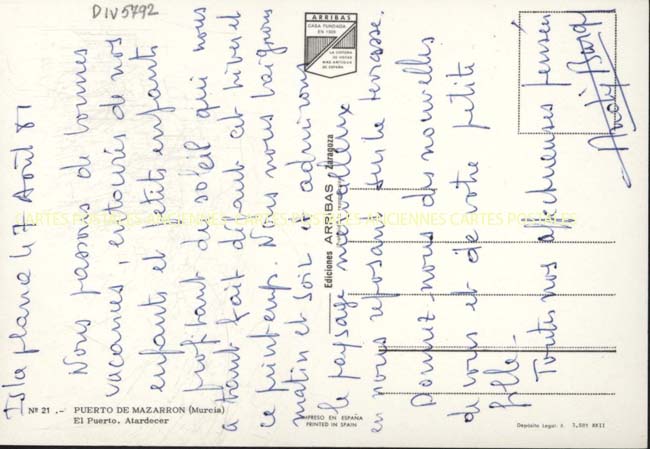 DIV5792
ARRIBAS
CASA FUNDADA
EN 1928
LA EDITORA
DE VISTAS
MAS ANTIGUA
DE ESPAÑA
Isla plana le 7 Août 81
Nous passons de bonnes
vacances, entourés de nos
enfants et petits enfants
profitant du soleil qui nous
a tant fait défaut cet hiver et
ce printemps. Nous nous baignons
matin et soir et admirons
le paysage merveilleux
en nous reposant sur la terrasse.
Donnez-nous des nouvelles
de vous et de votre petite
fille.
Toutes nos affectueuses pensées
Ediciones ARRIBAS Zaragoza
CARTES POSTALES ANCIENNES CARTES POSTALES ANCIENNES CARTES POSTALES
Nº 21 .- PUERTO DE MAZARRON (Murcia)
El Puerto. Atardecer
IMPRESO EN ESPAÑA
PRINTED IN SPAIN
Depósito Legal: Z.